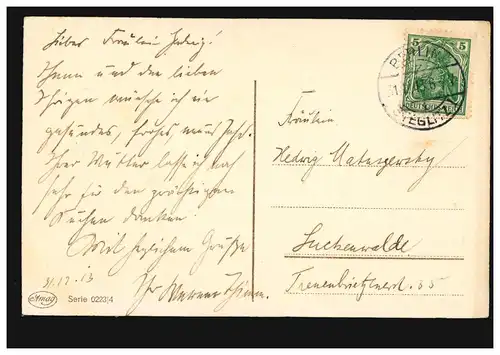 Liebes Fräulein Hedwig!
Ihnen und den lieben
Ihrigen wünsche ich ein
gesundes, frohes, neues Jahr.
Ihrer Mutter lasse ich noch
sehr für den prächtigen
Kuchen danken.
Mit herzlichem Gruße
31.12.13
Ihr Werner
Amag
Serie 0223/4
5 5
BERLIN
STEGLITZ
Fräulein
Hedwig Matuszewsky
Luckenwalde
Treuenbrietzenerst. 35